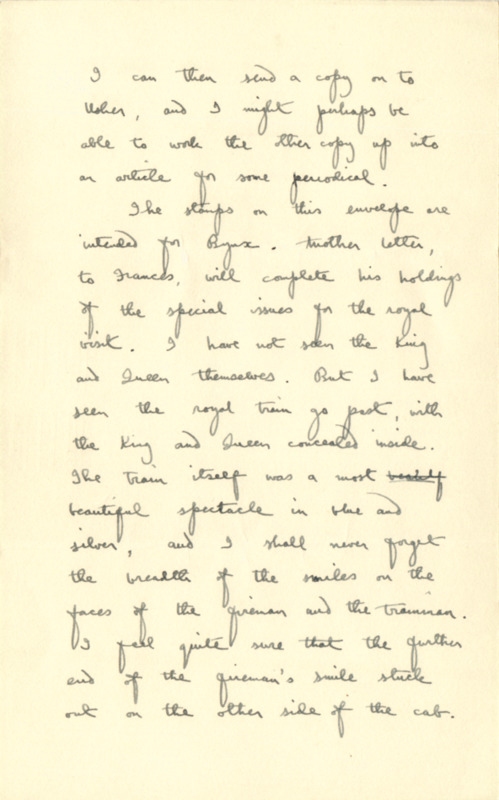 I can then send a copy on to
Usher, and I might perhaps be
able to work the other copy up into
an article for some periodical.
The stamps on this envelope are
intended for Bynx. Another letter,
to Frances, will complete his holdings
of the special issues for the royal
visit. I have not seen the King
and Queen themselves. But I have
seen the royal train go past, with
the King and Queen concealed inside.
The train itself was a most beautif
beautiful spectacle in blue and
silver, and I shall never forget
the breadth of the smiles on the
faces of the fireman and the trainman.
I feel quite sure that the further
end of the fireman's smile stuck
out on the other side of the cab.